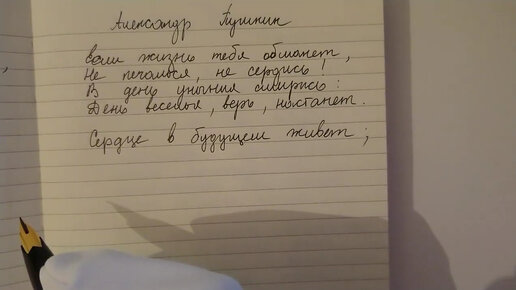 Александр Пушкин
Если жизнь тебя обманет,
Не печалься, не сердись!
В день уныния смирись:
День веселья, верь, настанет.
Сердце в будущем живет;